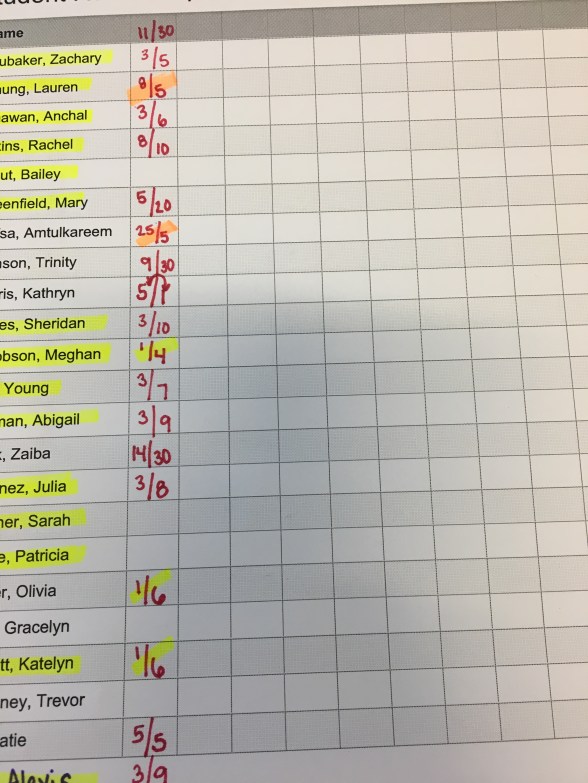 ame 11/30
ubaker, Zachary 3/5
ung, Lauren 8/5
awan, Anchal 3/6
ins, Rachel 8/10
ut, Bailey
eenfield, Mary 5/20
sa, Amtulkareem 25/5
nson, Trinity 9/30
ris, Kathryn 5/
es, Sheridan 3/10
obson, Meghan 1/4
Young 3/7
man, Abigail 3/9
, Zaiba 14/30
nez, Julia 3/8
ner, Sarah
e, Patricia
r, Olivia 1/6
Gracelyn
tt, Katelyn 1/6
ney, Trevor
atie 5/5
Alexis 3/9